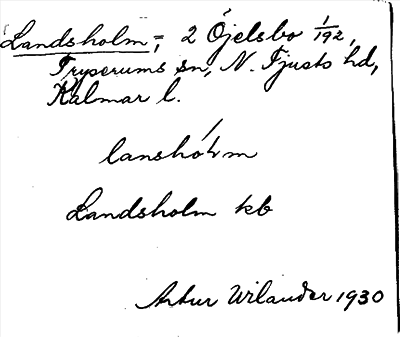 Landsholm, 2 Öjelsbo 1/192,
Tryserums sn, N. Tjusts hd,
Kalmar l.
Landsholm kb
Artur Wilander 1930